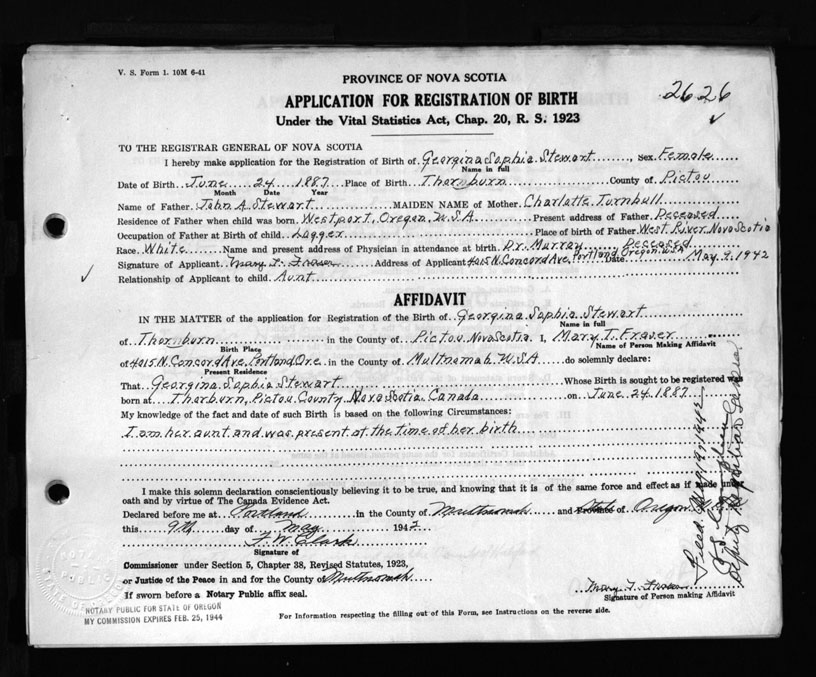 V. S. Form 1. 10M 6-41
PROVINCE OF NOVA SCOTIA
2626
APPLICATION FOR REGISTRATION OF BIRTH
Under the Vital Statistics Act, Chap. 20, R. S. 1923
TO THE REGISTRAR GENERAL OF NOVA SCOTIA
I hereby make application for the Registration of Birth of Georgina Sophia Stewart, Sex Female
Name in full
Date of Birth June 24 1887 Place of Birth Thornburn County of Pictou
Month Date Year
Name of Father John A. Stewart MAIDEN NAME of Mother Charlotte Turnbull
Residence of Father when child was born Westport, Oregon, U.S.A. Present address of Father Deceased
Occupation of Father at Birth of child Logger Place of birth of Father West River Nova Scotia
Race White Name and present address of Physician in attendance at birth Dr. Murray Deceased
Signature of Applicant Mary T. Fraser Address of Applicant 4015 N. Concord Ave. Portland Oregon U.S.A. Date May 9, 1942
Relationship of Applicant to child Aunt
AFFIDAVIT
IN THE MATTER of the application for Registration of the Birth of Georgina Sophia Stewart
Name in full
of Thornburn in the County of Pictou, Nova Scotia I, Mary T. Fraser
Birth Place Name of Person Making Affidavit
of 4015 N. Concord Ave, Portland Ore. in the County of Multnomah U.S.A. do solemnly declare:
Present Residence
That Georgina Sophia Stewart Whose Birth is sought to be registered was
born at Thorburn, Pictou County, Nova Scotia Canada on June 24, 1887
My knowledge of the fact and date of such Birth is based on the following Circumstances:
I am her aunt and was present at the time of her birth
I make this solemn declaration conscientiously believing it to be true, and knowing that it is of the same force and effect as if made under
oath and by virtue of The Canada Evidence Act.
Declared before me at Portland in the County of Multnomah and Province of State Oregon
this 9th day of May 1942
F. W. Clark
Signature of
Commissioner under Section 5, Chapter 38, Revised Statutes, 1923,
or Justice of the Peace in and for the County of Multnomah
If sworn before a Notary Public affix seal.
Mary T. Fraser
Signature of Person making Affidavit
NOTARY PUBLIC FOR STATE OF OREGON
MY COMMISSION EXPIRES FEB. 25, 1944
For Information respecting the filling out of this Form, see Instructions on the reverse side.
NOTARY
PUBLIC
Filed 1942
Deputy Registrar